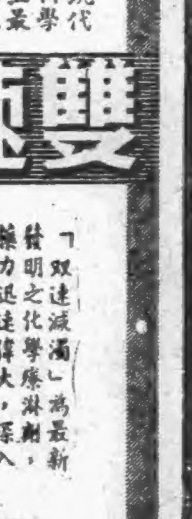 代
學
最
雙
「双速滅濁」為最新
發明之化學療淋劑，
力迅速偉大，深入